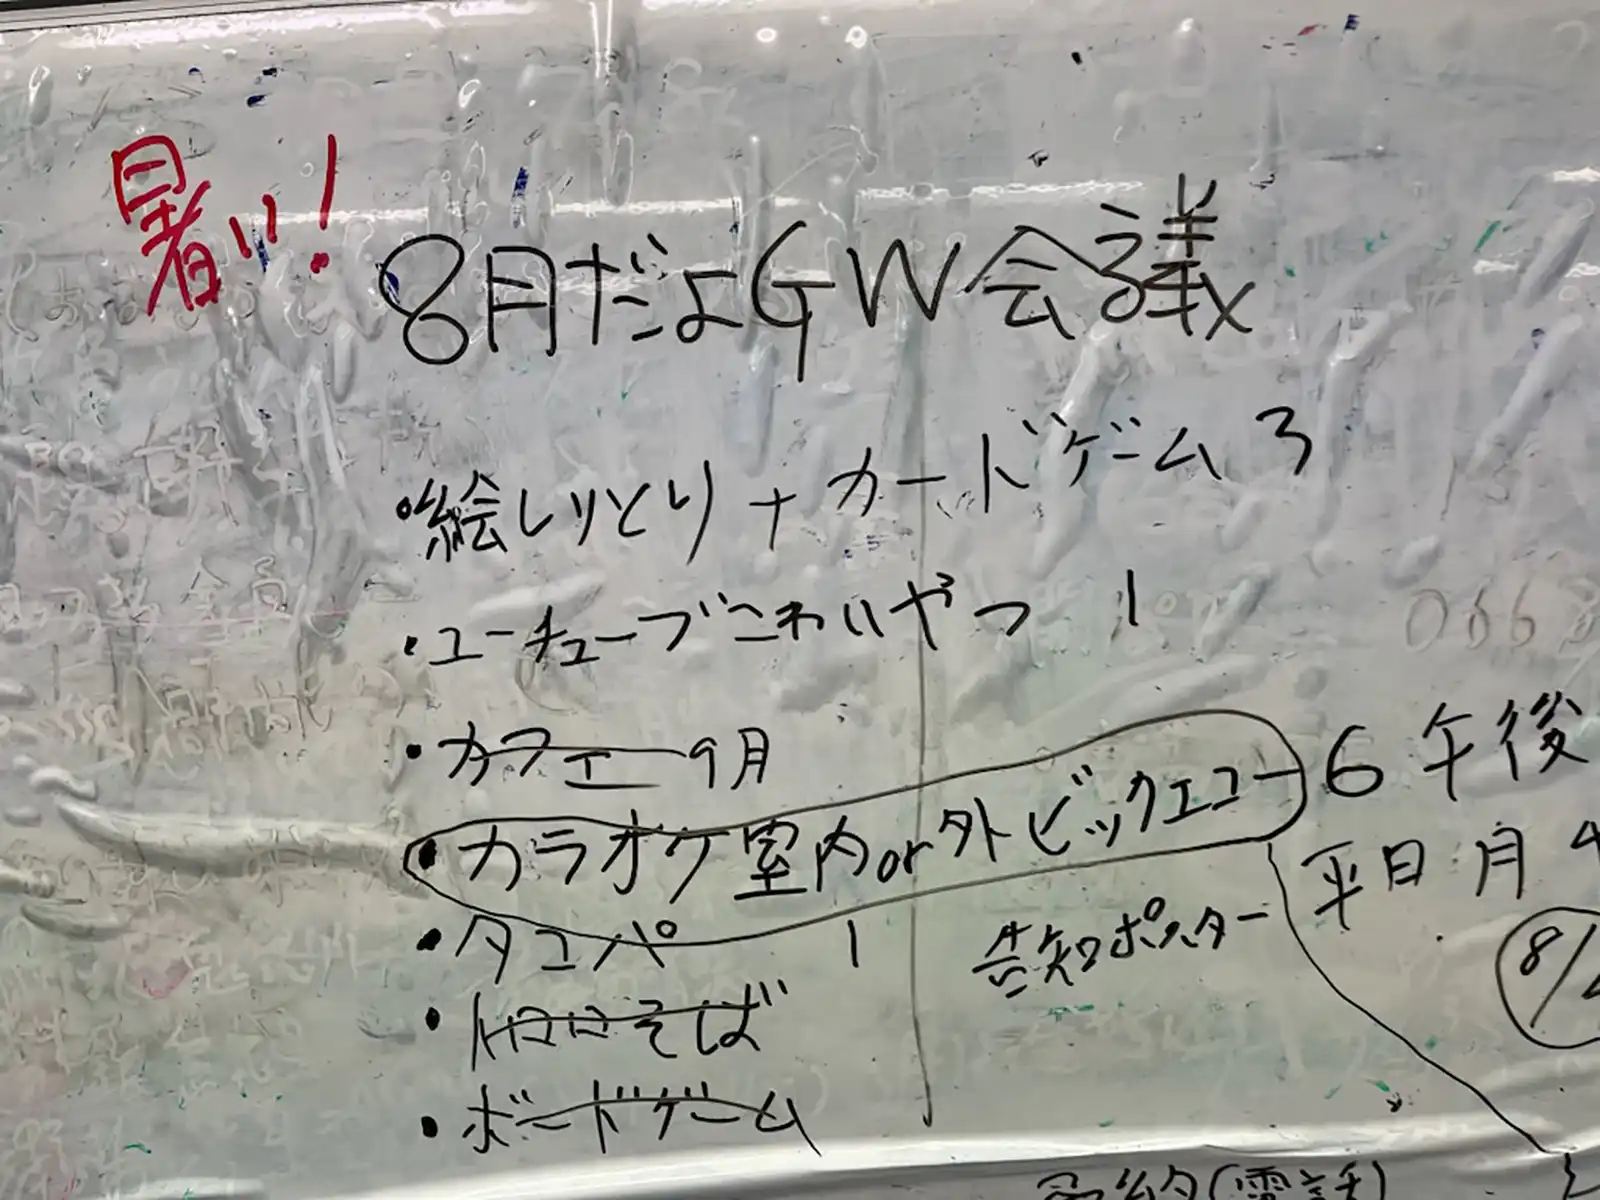 暑い!
8月だよGW会議
・絵しりとり+カードゲーム 3
・ユーチューブこわいやつ 1
・カフェ 9月
・カラオケ室内or外ビックエコー 6 午後
・タコパ 1
告知ポスター
平日 月
8/
そば
・ボードゲーム
(電話)